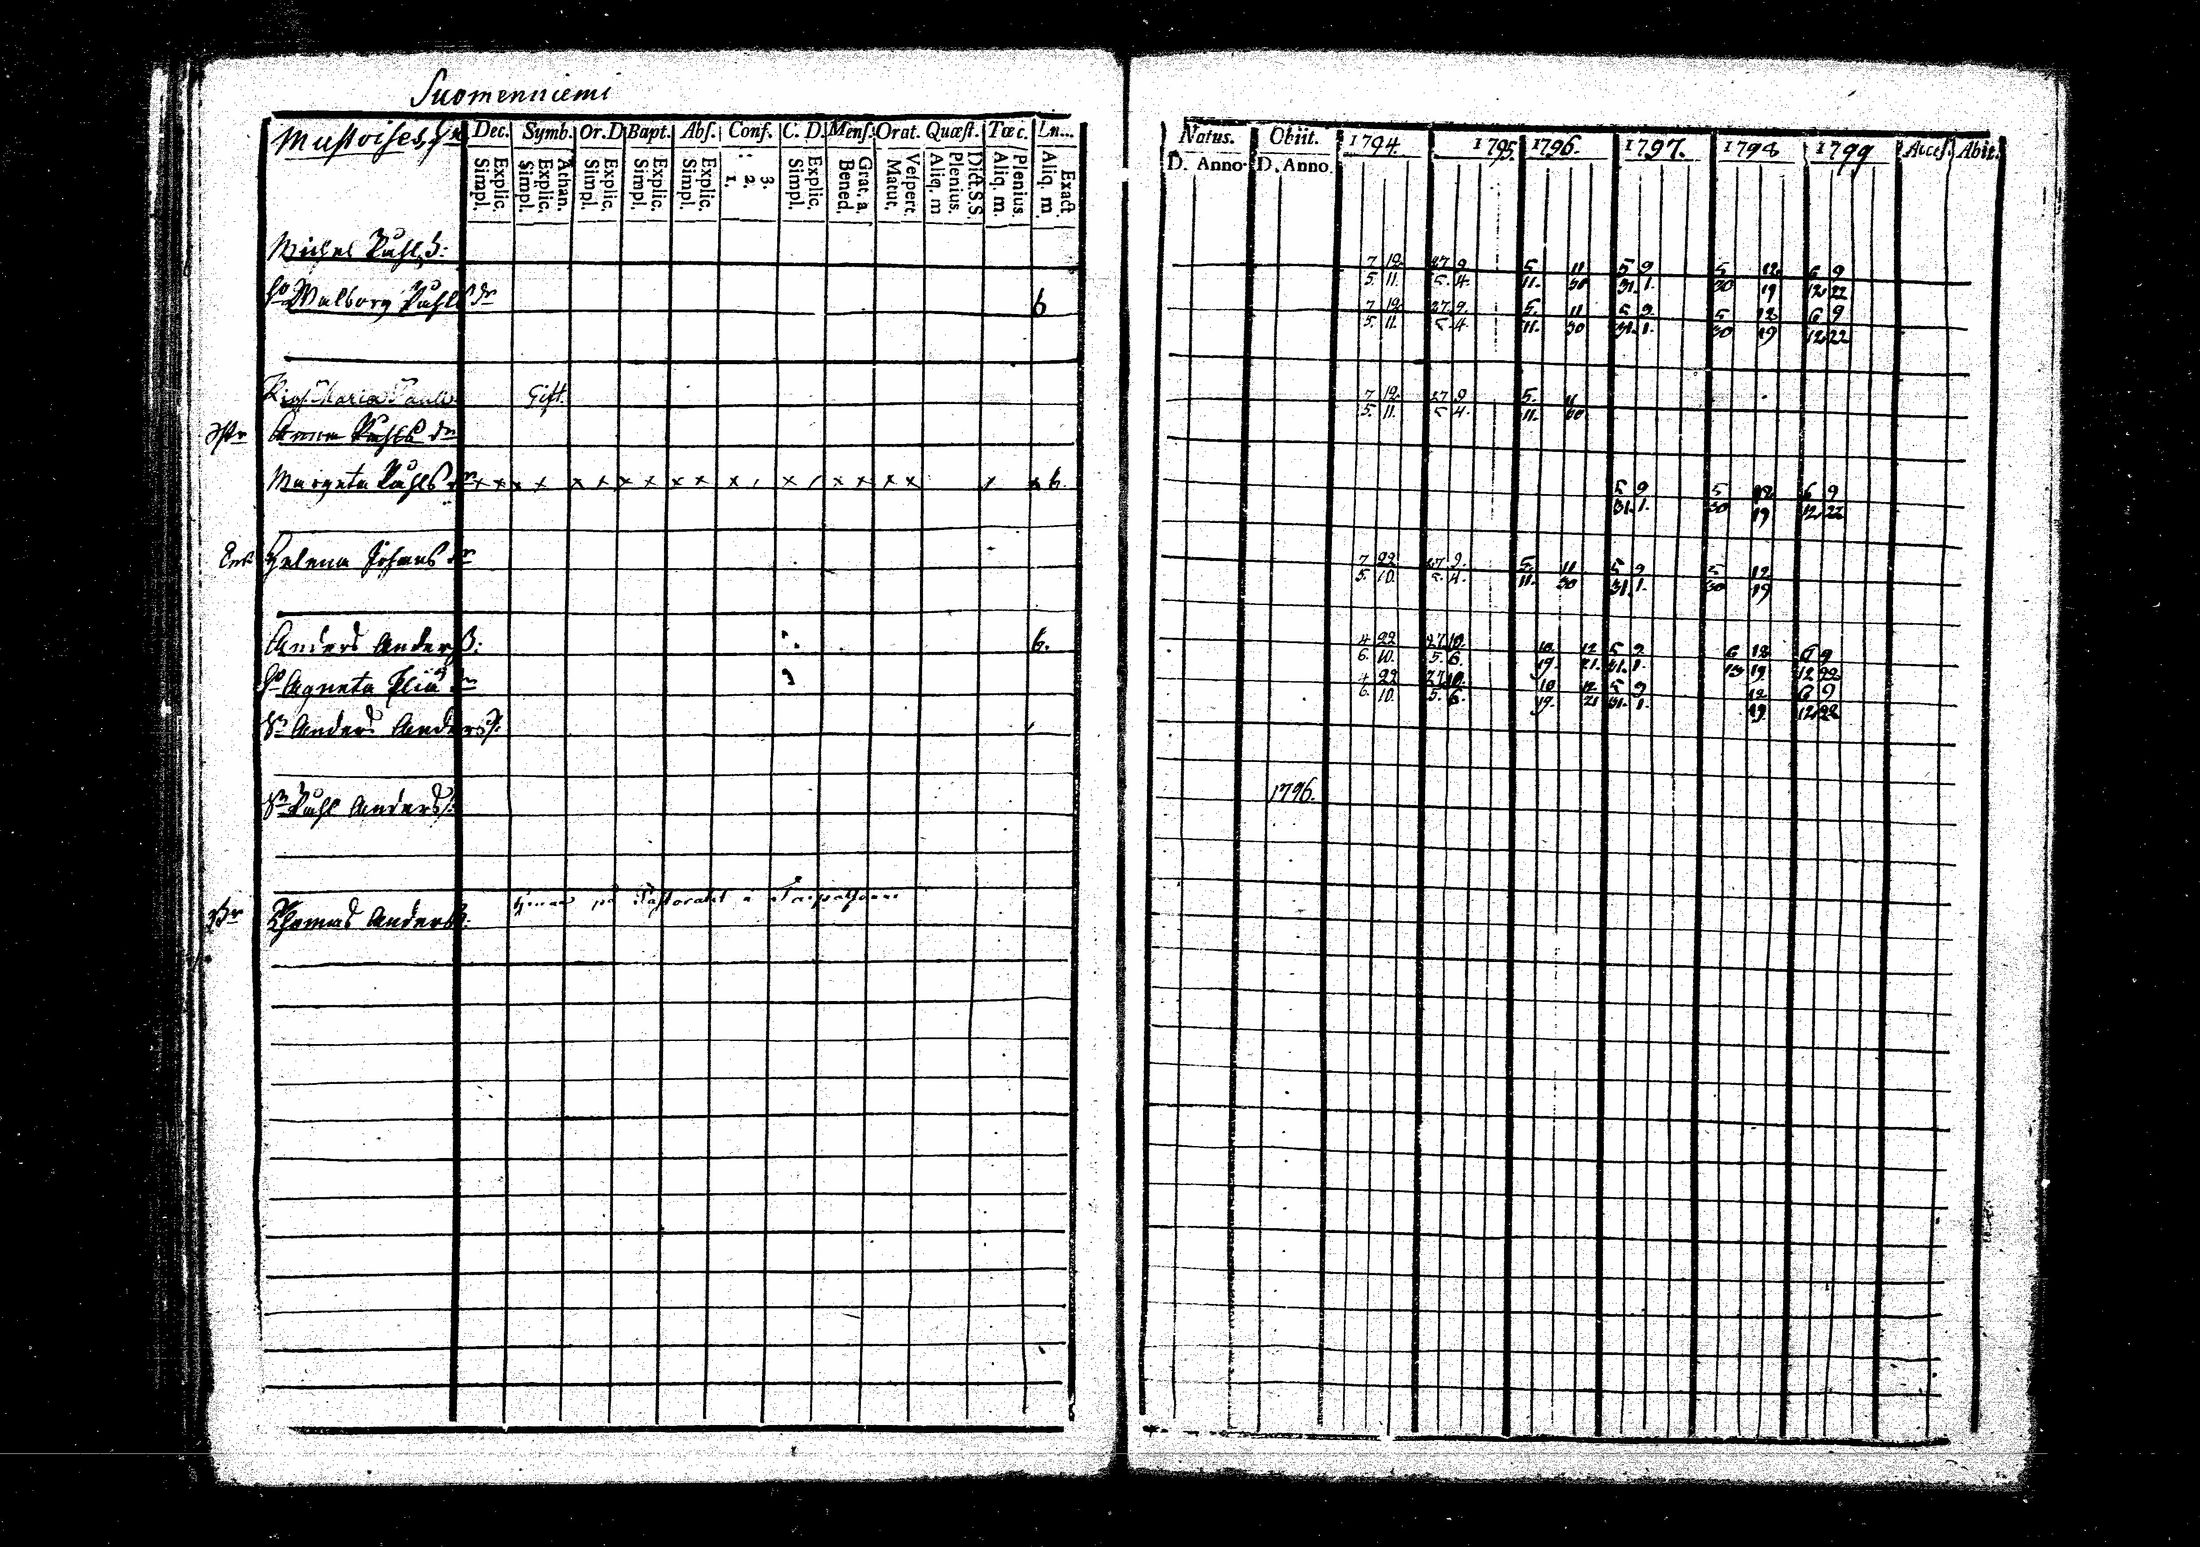 Suomenniemi
Dec. Symb. Or.D Bapt. Abſ. Conf. C. D. Menſ. Orat. Quæſt. Tæc. Ln...
Simpl. Explic. Simpl. Explic. Athan. Simpl. Explic. Simpl. Explic. Simpl. Explic. 1. 2. 3. Simpl. Explic. Bened. Grat. a. Matut. Veſpert. Aliq. m Plenius. Dict. S.S. Aliq. m. Plenius. Aliq. m Exact.
Michel Påhls.
Hu Walborg Påhls dr
b
Maria Gift.
Anna Påhls dr
Margreta Påhls dr x x x x x x x x x x x x x x x x x x b.
Enk Helena Johans dr
Anders Anders.
b.
Hu Agneta dr
Sn Anders Anders.
Sn Påhl Anders.
på Pastoratet i
Thomas Anders.
Natus. Obiit. 1794. 1795. 1796. 1797. 1798 1799 Acceſ. Abit.
D. Anno D. Anno.
7 19. 27 9 5. 11 5 9 5 12. 6 9
5. 11. 5. 4. 11. 30 31. 1. 30 19 12. 22
7 19. 27. 9. 5. 11 5 9. 5 12 6 9
5. 11. 5 4 11. 30 31. 1. 30 19 12. 22
7 19. 27 9 5. 11
5. 11. 5 4. 11. 30.
5 9 5 12 6 9
31. 1. 30 19 12. 22
7 22 27 9. 5. 11 5 9 5 12
5. 10. 5. 4. 11. 30 31. 1. 30 19
4 22 27. 10. 10. 12 5 9. 6 12 6 9
6. 10. 5. 6. 19. 21. 31. 1. 13 19 12 22
4 22 27. 10. 10 12 5 9 12 6 9
6. 10. 5. 6. 19. 21 31. 1. 19. 12. 22
1796.